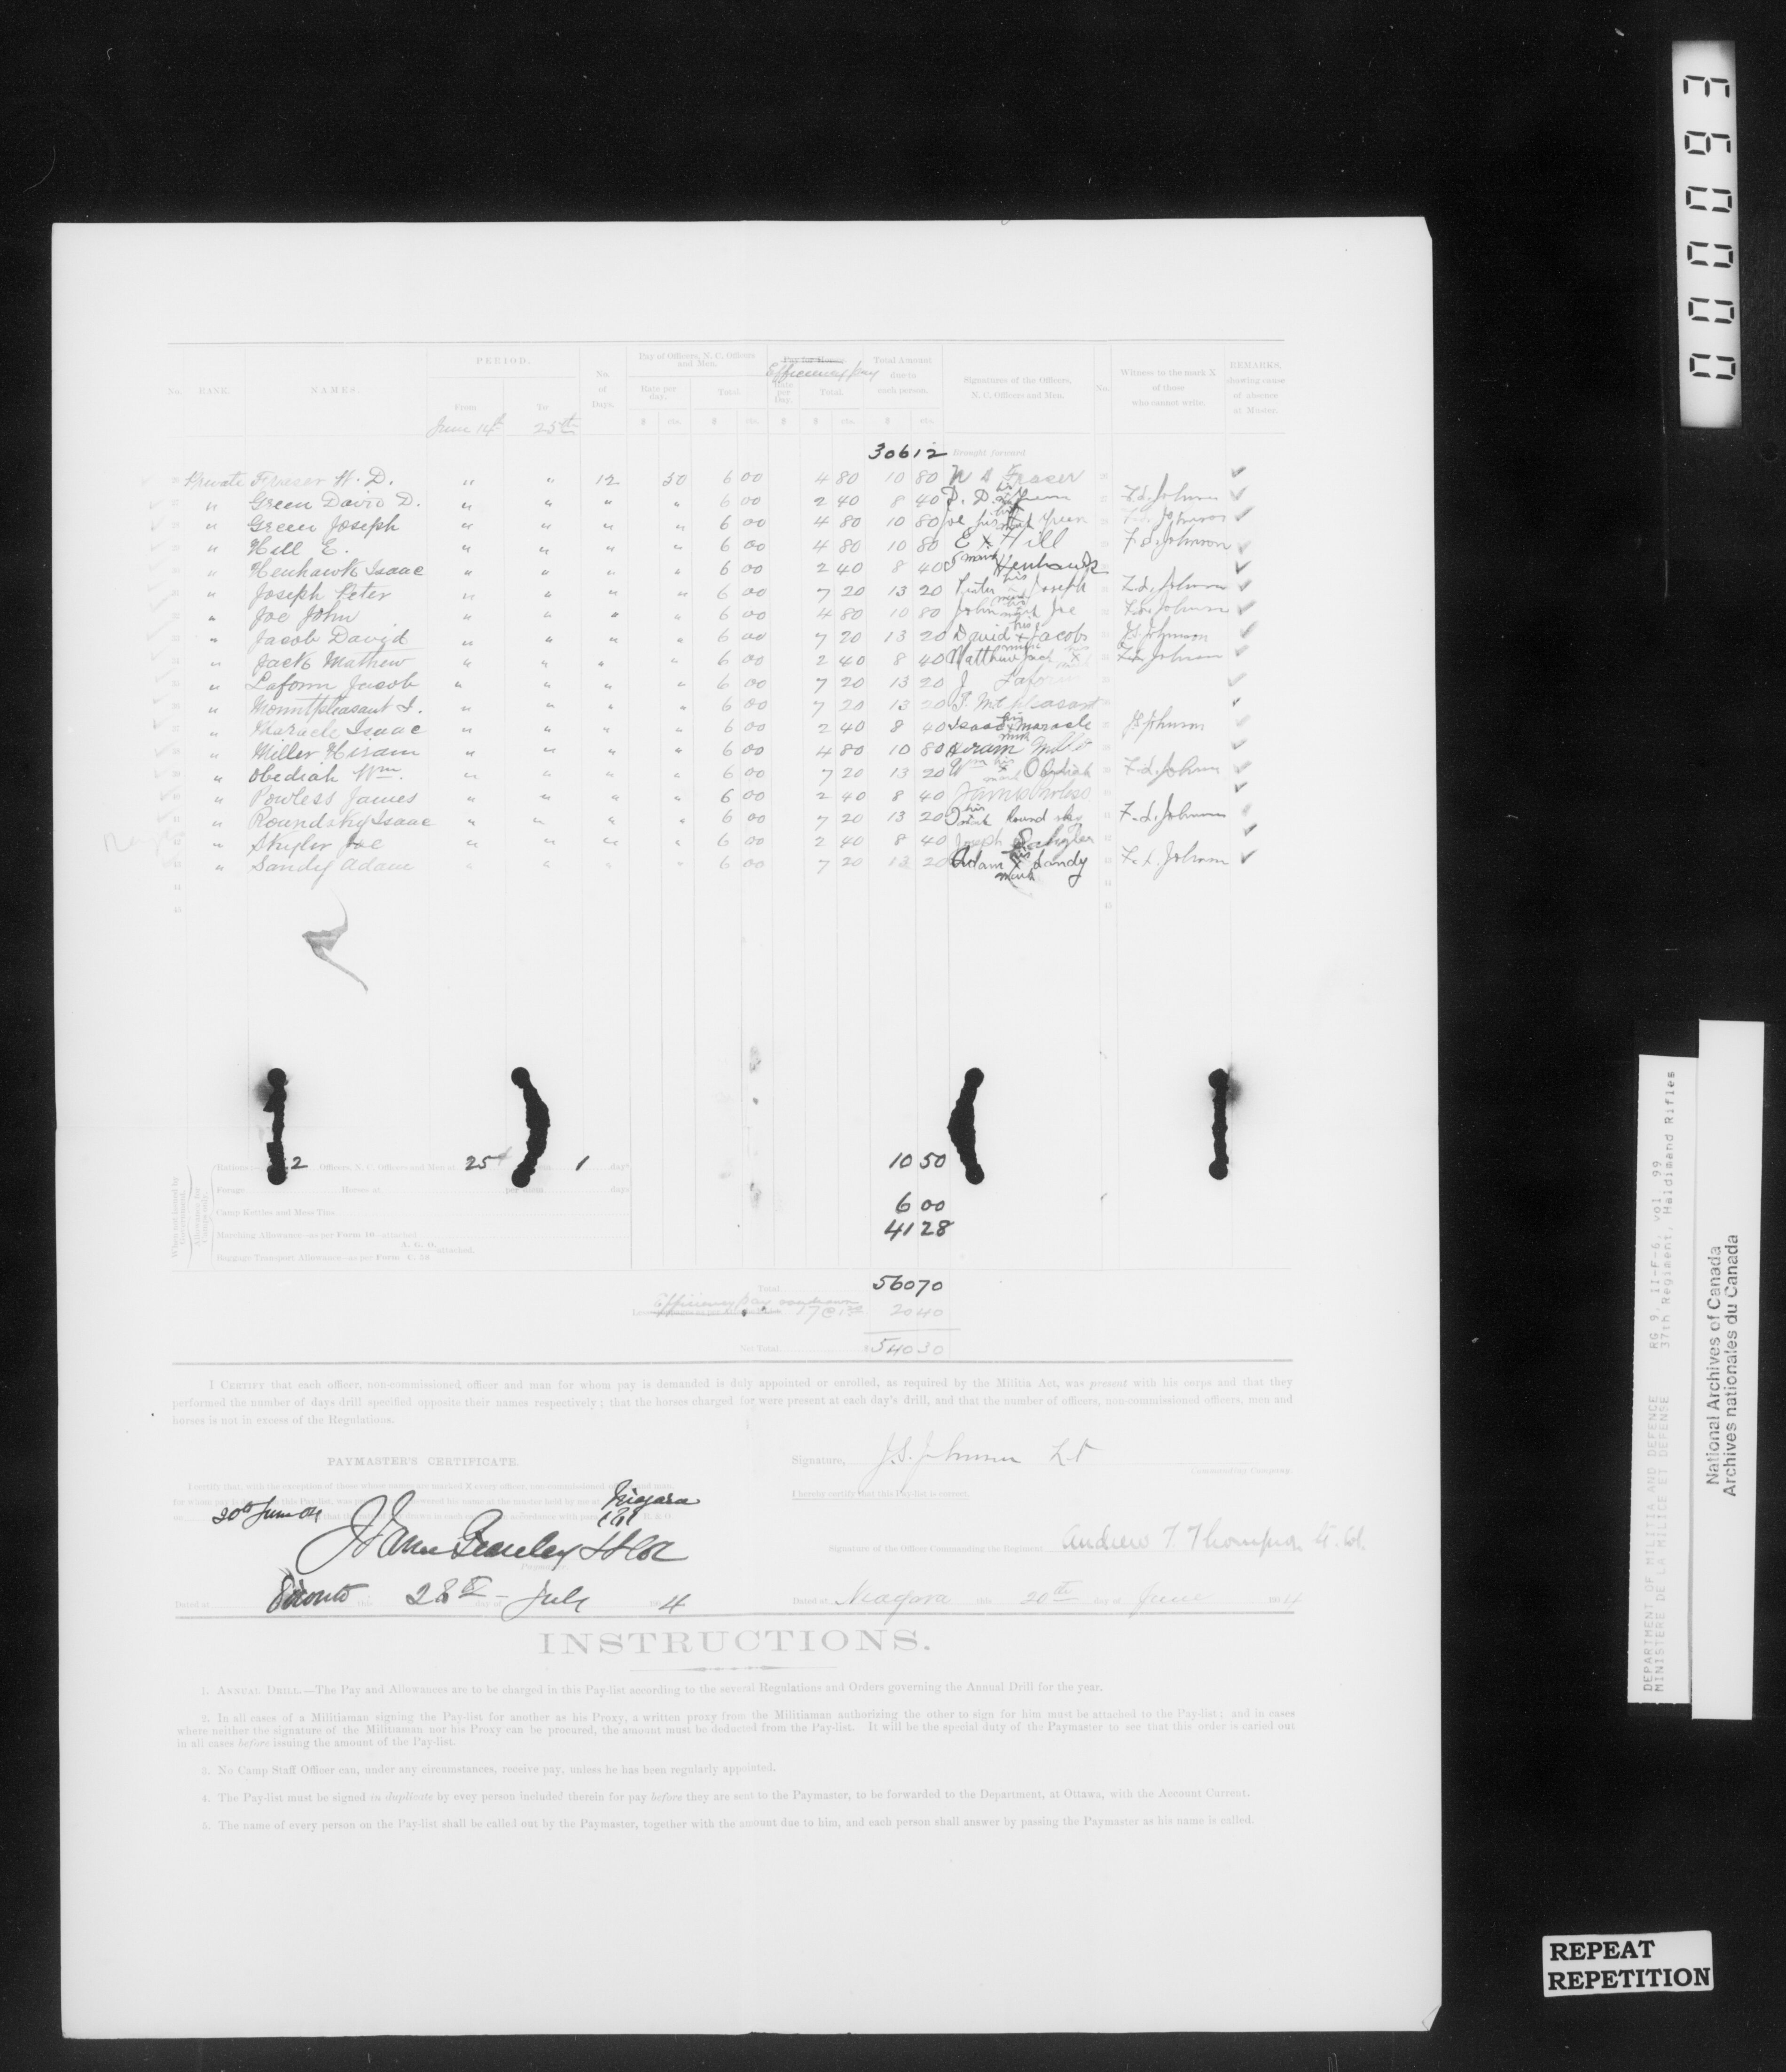 PERIOD.
Pay of Officers, N. C. Officers and Men.
Pay for Horses.
Efficiency pay
Total Amount due to each person.
REMARKS, showing cause of absence at Muster.
No. RANK. NAMES. From To No. of Days. Rate per day. Total. Rate per Day. Total. Signatures of the Officers, N. C. Officers and Men. No. Witness to the mark X of those who cannot write.
June 14th 25th $ cts. $ cts. $ $ cts. $ cts.
306 12 Brought forward
Private Fraser W. D. " " 12 50 6 00 4 80 10 80 W D Fraser
" Green David D. " " " " 6 00 2 40 8 40 D. D. Green F. d. Johnson
" Green Joseph " " " " 6 00 4 80 10 80 Joe his mark Green Johnson
" Hill E. " " " " 6 00 4 80 10 80 E x Hill mark F. d. Johnson
" Henhawk Isaac " " " " 6 00 2 40 8 40 Henhawk
" Joseph Peter " " " " 6 00 7 20 13 20 Peter his mark Joseph Johnson
" Joe John " " " " 6 00 4 80 10 80 John his mark Joe Johnson
" Jacob David " " " " 6 00 7 20 13 20 David his x mark Jacobs J.S. Johnson
" Jack Mathew " " " " 6 00 2 40 8 40 Matthew Jack his x mark Johnson
" Laform Jacob " " " " 6 00 7 20 13 20 J Laform
" Mountpleasant I. " " " " 6 00 7 20 13 20 Mt Pleasant
" Maracle Isaac " " " " 6 00 2 40 8 40 Isaac his x mark maracle J.S. Johnson
" Miller Hiram " " " " 6 00 4 80 10 80 Hiram Miller
" Obediah Wm. " " " " 6 00 7 20 13 20 Wm his x mark Obediah F. d. Johnson
" Powless James " " " " 6 00 2 40 8 40 James Powless
" Roundsky Isaac " " " " 6 00 7 20 13 20 his mark Round sky F. d. Johnson
" Skyler Joe " " " " 6 00 2 40 8 40 Joseph
" Sandy Adam " " " " 6 00 7 20 13 20 Adam his x mark Sandy Johnson
When not issued by Government.
Allowance for Camps only.
Rations 2 Officers, N. C. Officers and Men at 25 1 days 10 50
Forage Horses at per diem days
Camp Kettles and Mess Tins 6 00
Marching Allowance—as per Form 10—attached 41 28
Baggage Transport Allowance—as per Form A. G. O. C. 58 attached.
Total 560 70
Efficiency pay 17 @ 20 40
Net Total $ 540 30
I CERTIFY that each officer, non-commissioned officer and man for whom pay is demanded is duly appointed or enrolled, as required by the Militia Act, was present with his corps and that they
performed the number of days drill specified opposite their names respectively; that the horses charged for were present at each day's drill, and that the number of officers, non-commissioned officers, men and
horses is not in excess of the Regulations.
PAYMASTER'S CERTIFICATE.
Signature, J.S. Johnson Lt
Commanding Company.
I certify that, with the exception of those whose names are marked X every officer, non-commissioned officer and man,
for whom pay is in this Pay-list, was answered his name at the muster held by me at Niagara
20th June 04 that the drawn in each accordance with para. R. & O.
I hereby certify that this Pay-list is correct.
Paymaster
Signature of the Officer Commanding the Regiment Andrew T Thompson Lt. Col.
Dated at Toronto this 28th day of July 1904
Dated at Niagara this 20th day of June 1904
INSTRUCTIONS.
1. ANNUAL DRILL.—The Pay and Allowances are to be charged in this Pay-list according to the several Regulations and Orders governing the Annual Drill for the year.
2. In all cases of a Militiaman signing the Pay-list for another as his Proxy, a written proxy from the Militiaman authorizing the other to sign for him must be attached to the Pay-list; and in cases
where neither the signature of the Militiaman nor his Proxy can be procured, the amount must be deducted from the Pay-list. It will be the special duty of the Paymaster to see that this order is caried out
in all cases before issuing the amount of the Pay-list.
3. No Camp Staff Officer can, under any circumstances, receive pay, unless he has been regularly appointed.
4. The Pay-list must be signed in duplicate by evey person included therein for pay before they are sent to the Paymaster, to be forwarded to the Department, at Ottawa, with the Account Current.
5. The name of every person on the Pay-list shall be called out by the Paymaster, together with the amount due to him, and each person shall answer by passing the Paymaster as his name is called.
000093
DEPARTMENT OF MILITIA AND DEFENCE RG 9, II-F-6, vol. 99
MINISTERE DE LA MILICE ET DEFENSE 37th Regiment, Haldimand Rifles
National Archives of Canada
Archives nationales du Canada
REPEAT
REPETITION